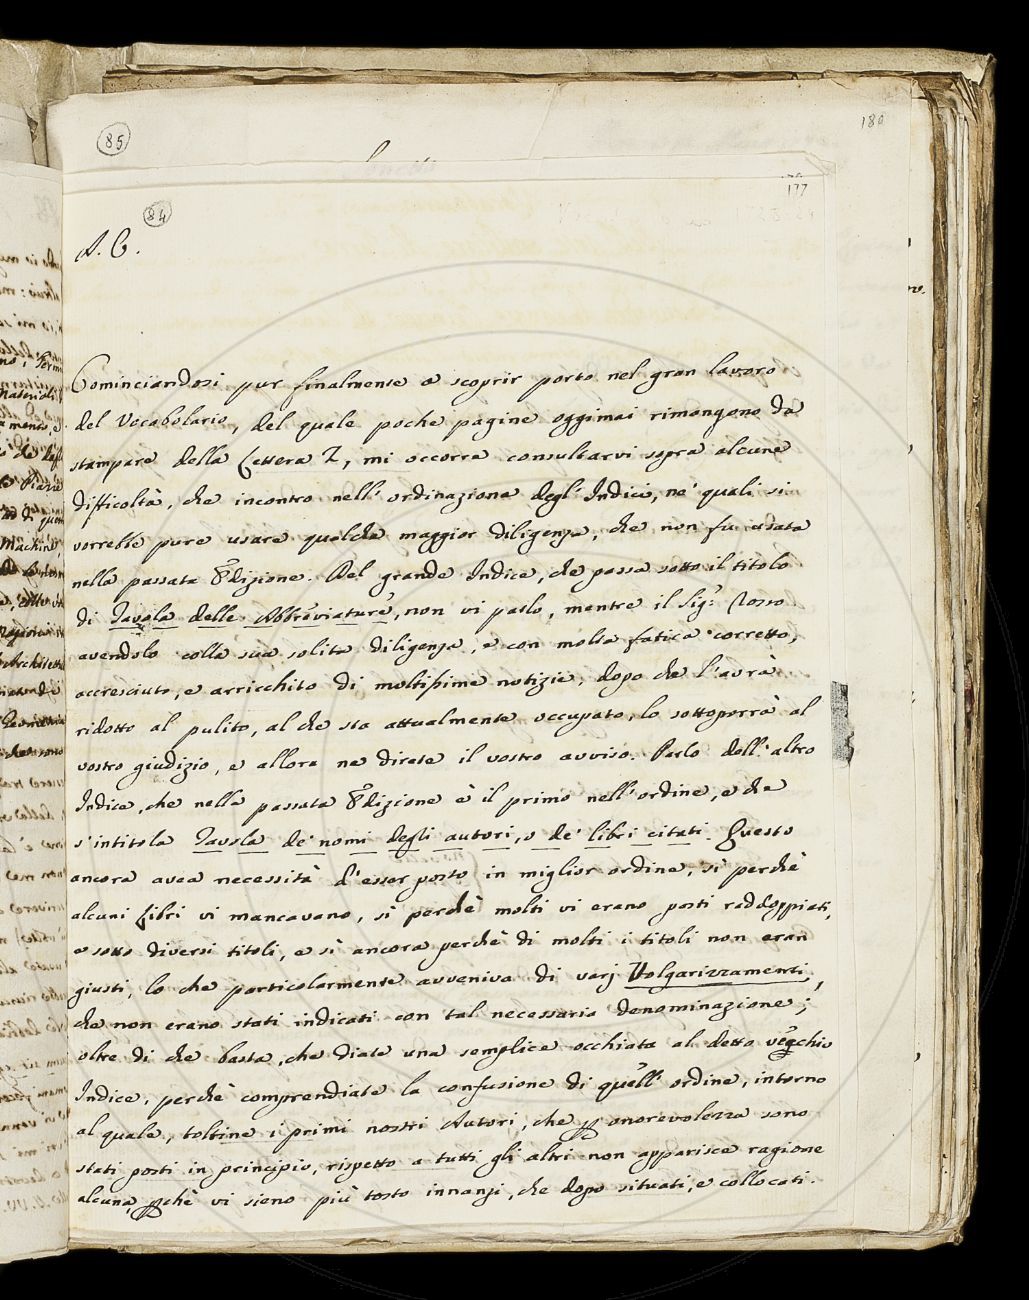 85
180
177
84
A. C.
Cominciandosi pur finalmente a scoprir porto nel gran lavoro
del Vocabolario, del quale poche pagine oggimai rimangono da
stampare della Lettera Z, mi occorre consultarvi sopra alcune
difficoltà, che incontro nell' ordinazione degl' Indici, ne' quali si
vorrebbe pure usare qualche maggior diligenza, che non fu usata
nella passata Edizione. Del grande Indice, che passa sotto il titolo
di Tavola delle Abbreviature, non vi parlo, mentre il Sig.r Rosso
avendolo colla sua solita diligenza, e con molta fatica corretto,
accresciuto, e arricchito di moltissime notizie, dopo che l'avrà
ridotto al pulito, al che sta attualmente occupato, lo sottoporrà al
vostro giudizio, e allora ne direte il vostro avviso. Parlo dell' altro
Indice, che nella passata Edizione è il primo nell' ordine, e che
s' intitola Tavola de' nomi degli autori, o de' libri citati. Questo
ancora avea necessità d' esser posto in miglior ordine, sì perchè
alcuni libri vi mancavano, sì perchè molti vi erano posti raddoppiati,
e sotto diversi titoli, e sì ancora perchè di molti i titoli non eran
giusti, lo che particolarmente avveniva di varj Volgarizzamenti,
che non erano stati indicati con tal necessaria denominazione;
oltre di che basta, che diate una semplice occhiata al detto vecchio
Indice, perchè comprendiate la confusione di quell' ordine, intorno
al quale, toltine i primi nostri Autori, che p onorevolezza sono
stati posti in principio, rispetto a tutti gli altri non apparisce ragione
alcuna, pchè vi sieno più tosto innanzi, che dopo situati, e collocati.